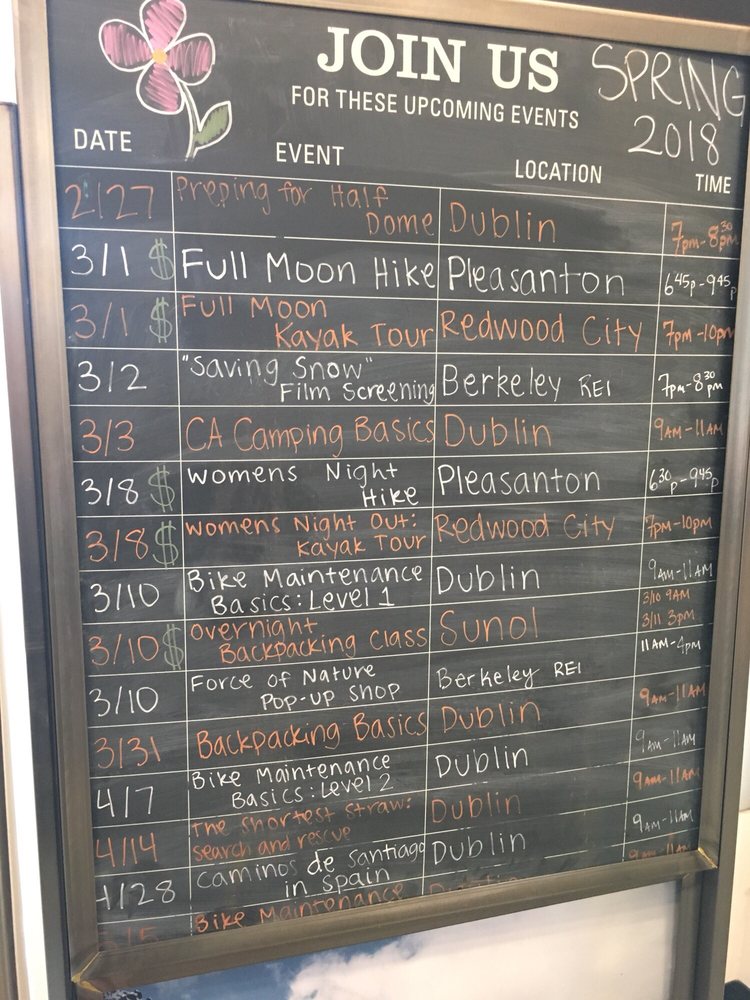 JOIN US
FOR THESE UPCOMING EVENTS
SPRING
2018
DATE EVENT LOCATION TIME
2/27 Preping for Half Dome Dublin 7pm-8:30pm
3/1 $ Full Moon Hike Pleasanton 6:45p-9:45p
3/1 $ Full Moon Kayak Tour Redwood City 7pm-10pm
3/2 "Saving Snow" Film Screening Berkeley REI 7pm-8:30pm
3/3 CA Camping Basics Dublin 9AM-11AM
3/8 $ Womens Night Hike Pleasanton 6:30p-9:45p
3/8 $ Womens Night Out: Kayak Tour Redwood City 7pm-10pm
3/10 Bike Maintenance Basics: Level 1 Dublin 9AM-11AM
3/10 $ Overnight Backpacking Class Sunol 3/10 9AM 3/11 3pm
3/10 Force of Nature Pop-up Shop Berkeley REI 11AM-4pm
3/31 Backpacking Basics Dublin 9AM-11AM
4/7 Bike Maintenance Basics: Level 2 Dublin 9AM-11AM
4/14 The shortest straw: search and rescue Dublin 9AM-11AM
4/28 Caminos de Santiago in Spain Dublin 9AM-11AM
Bike Maintenance